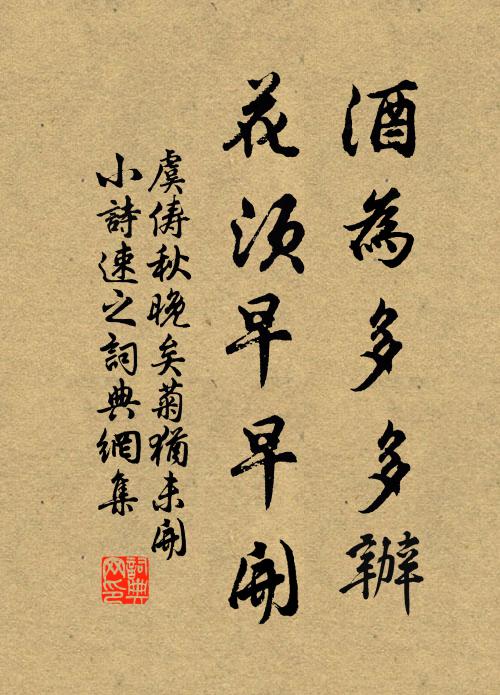 酒為多多辦
花須早早開
虞儔秋晚矣菊猶未開
小詩速之詞典網集
詞典
网印